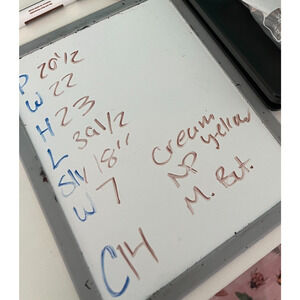 P 20 1/2
W 22
H 23
L 39 1/2
Slv 18"
W 7
C 14
Cream
NP yellow
M. But.